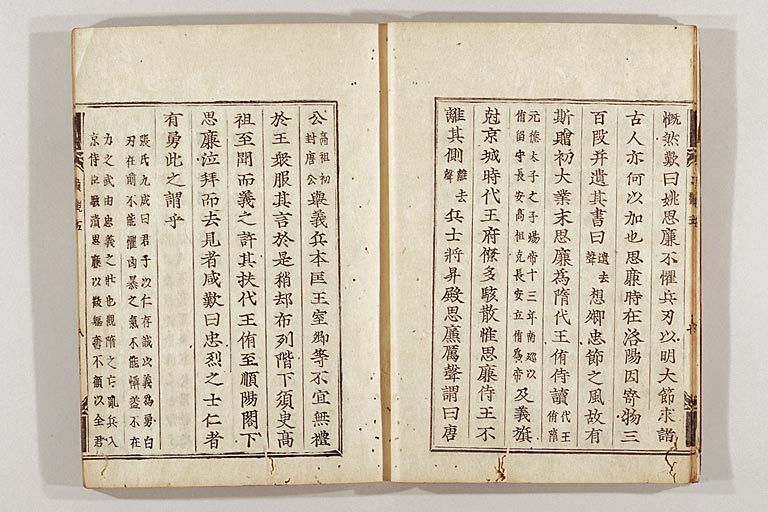 慨然歎曰姚思廉不懼兵刃以明大節求諸
古人亦何以加也思廉時在洛陽因寄物三
百段并遺其書曰遺去聲想卿忠節之風故有
斯贈初大業末思廉爲隋代王侑侍讀代王侑隋
元德太子之子煬帝十三年南巡以
侑留守長安高祖克長安立侑爲帝及義旗
尅京城時代王府僚多駭散惟思廉侍王不
離其側離去聲兵士將昇殿思廉厲聲謂曰唐
公高祖初封唐公舉義兵本匡王室卿等不宜無禮
於王衆服其言於是稍却布列階下須臾高
祖至聞而義之許其扶代王侑至順陽閤下
思廉泣拜而去見者咸歎曰忠烈之士仁者
有勇此之謂乎
張氏九成曰君子以仁存誠以義爲勇白
刃在前不能懼凶暴之氣不能懾蓋不在
力之武由忠義之壯也觀隋之亡亂兵入
京侍臣駭潰思廉以敢軀奮不顧以全君